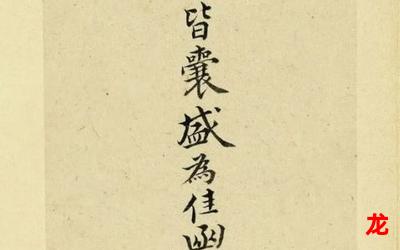 皆囊盛為佳函
龙